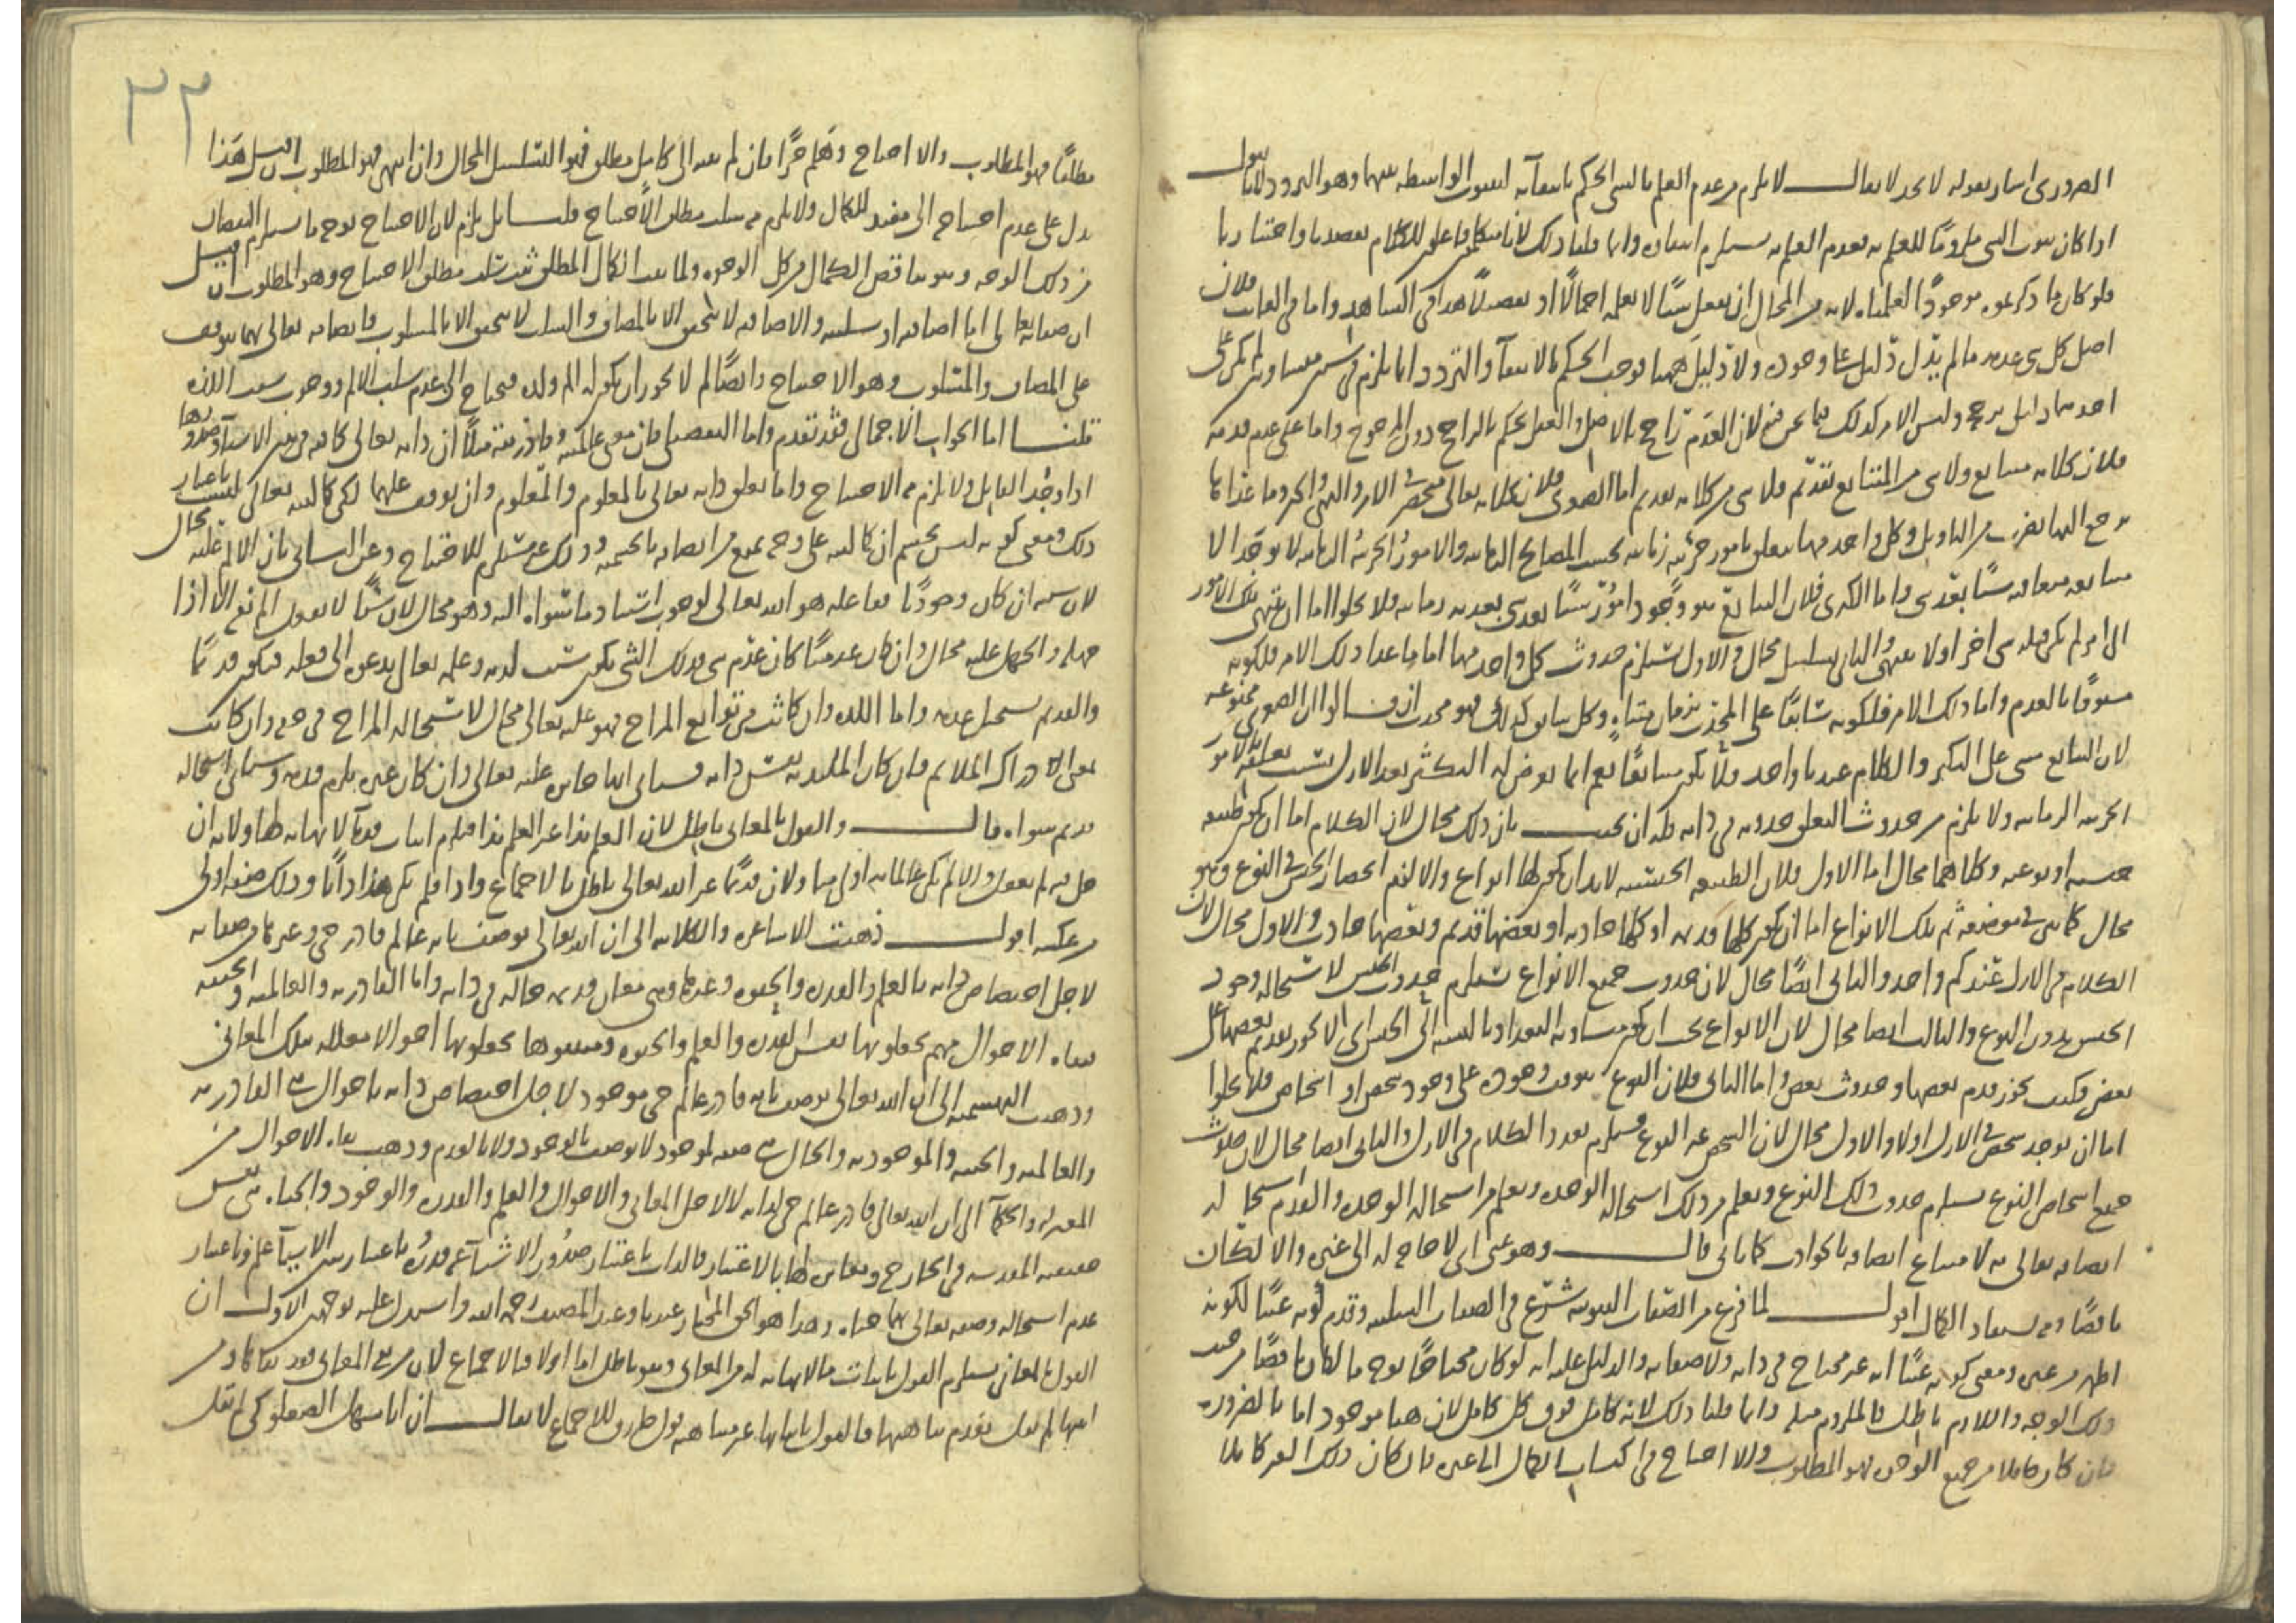 الضروري اشار بقوله لا نجد لا يقال لا يلزم من عدم العلم بالشيء الحكم بانتفائه لثبوت الواسطة بينهما وهو التردد لانا نقول
اذا كان ثبوت الشيء ملزومًا للعلم به فعدم العلم به يستلزم انتفاءه وانما قلنا ذلك لانا متكلمون فاعلون للكلام بقصدنا واختيارنا
فلو كان ما ذكرتموه موجودًا لعلمناه لانه من المحال ان يفعل شيئًا لا يعلمه اجمالًا او تفصيلًا هذا في الشاهد واما في الغائب فلان
اصل كل شيء عدمه ما لم يدل دليل على وجوده ولا دليل هنا يوجب الحكم بالانتفاء والتردد انما يلزم في شيئين متساويين لم يكن على
احدهما دليل يرجح وليس الامر كذلك فيما نحن فيه لان العدم راجح بالاصل والعقل يحكم بالراجح دون المرجوح واما على عدم قدمه
فلان كلامه متتابع ولا شيء من المتتابع بقديم فلا شيء من كلامه بقديم اما الصغرى فلان كلامه تعالى منحصر في الامر والنهي والخبر وما عداها
يرجع اليها بضرب من التاويل وكل واحد منها يتعلق بامور جزئية زمانية بحسب المصالح التامة والامور الجزئية الزمانية لا توجد الا
متتابعة متعاقبة شيئًا بعد شيء واما الكبرى فلان السابق هو وجود امور شيئًا بعد شيء بعدية زمانية فلا يخلوا اما ان تنتهي تلك الامور
الى امر لم يكن قبله شيء اخر اولا تنتهي والثاني تسلسل محال والاول يستلزم حدوث كل واحد منها اما ما عدا ذلك الامر فلكونه
مسبوقًا بالعدم واما ذلك الامر فلكونه سابقًا على المحدث بزمان متناه وكل ما يكون كذلك فهو محدث ان قالوا ان الصغرى ممنوعة
لان التتابع مبني على التكثر والكلام عندنا واحد فلا يكون متتابعًا نعم انما يعرض له التكثر بعد الازل بسبب تعلقه بالامور
الجزئية الزمانية ولا يلزم من حدوث التعلق حدوثه في ذاته فله ان يجيب بان ذلك محال لان الكلام اما ان يكون طبيعة
جنسية او نوعية وكلاهما محال اما الاول فلان الطبيعة الجنسية لابد ان يكون لها انواع والا لزم انحصار الجنس في النوع وهو
محال كما تبين في موضعه ثم تلك الانواع اما ان يكون كلها قديمة او كلها حادثة او بعضها قديم وبعضها حادث والاول محال لان
الكلام في الازل عندكم واحد والثاني ايضًا محال لان حدوث جميع الانواع يستلزم حدوث الجنس لاستحالة وجود
الجنس بدون النوع والثالث ايضا محال لان الانواع يجب ان يكون متساوية البعد بالنسبة الى الجنس اي لا يكون تقدم بعضها على
بعض فكيف يجوز قدم بعضها وحدوث بعض واما الثاني فلان النوع يتوقف وجوده على وجود شخص او اشخاص فلا يخلوا
اما ان يوجد شخص في الازل اولا والاول محال لان الشخص غير النوع فيلزم تعدد الكلام في الازل والثاني ايضا محال لان حدوث
جميع اشخاص النوع يستلزم حدوث ذلك النوع ويعلم من ذلك استحالة الوحدة ويعلم من استحالة الوحدة والقدم استحالة
اتصافه تعالى به لامتناع اتصافه بالحوادث كما ياتي قال وهو غني اي لا حاجة له الى غيره والا لكان
ناقصًا ومستفاد الكمال اقول لما فرغ من الصفات الثبوتية شرع في الصفات السلبية وقدم كونه غنيًا لكونه
اظهر من غيره ومعنى كونه غنيًا انه غير محتاج في ذاته ولا صفاته والدليل عليه انه لو كان محتاجًا بوجه ما لكان ناقصًا من حيث
ذلك الوجه واللازم باطل فالملزوم مثله وانما قلنا ذلك لانه كامل فوق كل كامل لان هنا موجود اما بالضرورة
فان كان كاملا من جميع الوجوه فهو المطلوب والا احتاج في اكتساب الكمال الى غيره فان كان ذلك الغير كاملا
٣٢
مطلقًا فهو المطلوب والا احتاج وهلم جرًا فان لم ينته الى كامل مطلق فهو التسلسل المحال وان انتهى فهو المطلوب ان قيل هذا
يدل على عدم احتياج الى مفيد للكمال ولا يلزم منه سلب مطلق الاحتياج قلنا بل يلزم لان الاحتياج بوجه ما يستلزم النقصان
من ذلك الوجه وهو يناقض الكمال من كل الوجوه ولما ثبت الكمال المطلق ثبت سلب مطلق الاحتياج وهو المطلوب ان قيل
ان صفاته تعالى اما اضافية او سلبية والاضافية لا تتحقق الا بالمضاف والسلب لا يتحقق الا بالمسلوب فاتصافه تعالى بهما يتوقف
على المضاف والمسلوب وهو الاحتياج وايضًا لم لا يجوز ان يكون له الم ولذة فيحتاج الى عدم سلب الالم ووجود سبب اللذة
قلنا اما الجواب الاجمالي فقد تقدم واما التفصيلي فان معنى عالميته وقادريته مثلًا ان ذاته تعالى كافية في تميز الاشياء وصدورها
اذا وجد القابل ولا يلزم منه الاحتياج واما تعلق ذاته تعالى بالمعلوم والمعلوم وان توقف عليهما لكن كماليته تعالى ليست باعتبار
ذلك ومعنى كونه ليس بجسم ان كماليته على وجه يمنع من اتصافه بالجسمية وذلك غير مستلزم للاحتياج وعن الثاني بان الالم عليه محال
لان سببه ان كان وجوديًا ففاعله هو الله تعالى لوجوب استناد ما سواه اليه وهو محال لان شيئًا لا يفعل الم نفسه الا اذا
جهله والجهل عليه محال وان كان عدميًا كان عدم شيء فذلك الشيء يكون سبب لذته وعلمه تعالى يدعوه الى فعله فيكون قديمًا
والقديم يستحيل عدمه واما اللذة وان كانت من توابع المزاج فهو عليه تعالى محال لاستحالة المزاج في حقه وان كانت
بمعنى الادراك الملائم فان كان الملتذ به نفس ذاته فسياتي انها جائزة عليه تعالى وان كان غيره يلزم قدمه وسياتي استحالة
قديم سواه قال والقول بالمعاني باطل لان العلم بذا غير العلم بذا فيلزم اثبات قدماء لا نهاية لها ولانه ان
حل فيه لم يعقل والا لم يكن عالمًا به اولى منا ولان قديمًا غير الله تعالى باطل بالاجماع واذا فلم يكن هذا ذاتًا وذلك صفة اولى
من عكسه اقول ذهبت الاشاعرة والكلابية الى ان الله تعالى يوصف بانه عالم قادر حي وغيرها من صفاته
لاجل اختصاص ذاته بالعلم والقدرة والحيوة وغيرها وهي معان قديمة حالة في ذاته واما القادرية والعالمية والحيية
فنفاة الاحوال منهم يجعلونها نفس القدرة والعلم والحيوة ومثبتوها يجعلونها احوالا معللة بتلك المعاني
وذهبت البهشمية الى ان الله تعالى يوصف بانه قادر عالم حي موجود لاجل اختصاص ذاته باحوال هي القادرية
والعالمية والحيية والموجودية والحال هي صفة لموجود لا يوصف بالوجود ولا بالعدم وذهب نفاة الاحوال من
المعتزلة والحكماء الى ان الله تعالى قادر عالم حي لذاته لا لاجل المعاني والاحوال والعلم والقدرة والوجود والحياة هي نفس
حقيقته المقدسة في الخارج ومغايرة لها بالاعتبار فالذات باعتبار صدور الاشياء عنه قدرة وباعتبار تبين الاشياء علم وباعتبار
عدم استحالة وصفه تعالى بهما حياة وهذا هو الحق المختار عندنا وعند المصنف رحمه الله واستدل عليه بوجهين الاول ان
القول بالمعاني يستلزم القول باثبات ما لا نهاية له من المعاني وهو باطل اما اولا فبالاجماع لان مثبتي المعاني
انها لم تعلل بقدم متناهيها فالقول باثباتها غير متناهية قول خارق للاجماع لا يقال ان ابا سهل الصعلوكي لم يقل